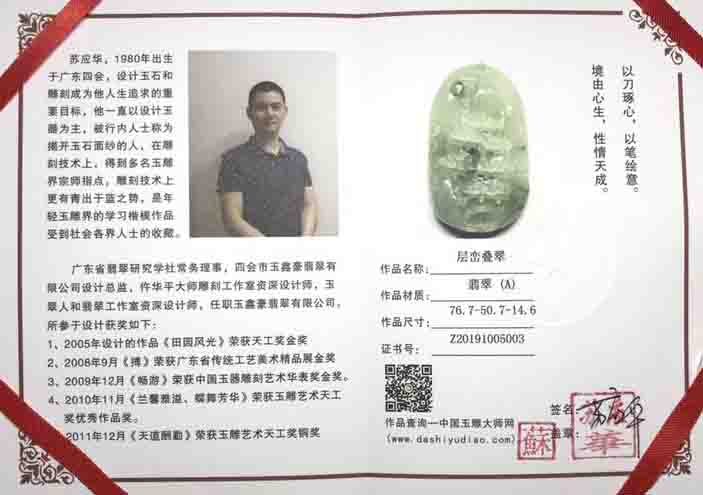 苏应华，1980年出生
于广东四会，设计玉石和
雕刻成为他人生追求的重
要目标，他一直以设计玉
器为主，被行内人士称为
揭开玉石面纱的人，在雕
刻技术上，得到多名玉雕
界宗师指点，雕刻技术上
更有青出于蓝之势，是年
轻玉雕界的学习楷模作品
受到社会各界人士的收藏。
广东省翡翠研究学社常务理事，四会市玉鑫豪翡翠有
限公司设计总监、仵华平大师雕刻工作室资深设计师，玉
翠人和翡翠工作室资深设计师，任职玉鑫豪翡翠有限公司。
所参于设计获奖如下：
1、2005年设计的作品《田园风光》荣获天工奖金奖
2、2008年9月《搏》荣获广东省传统工艺美术精品展金奖
3、2009年12月《畅游》荣获中国玉器雕刻艺术华表奖金奖。
4、2010年11月《兰馨雅溢、蝶舞芳华》荣获玉雕艺术天工
奖优秀作品奖。
2011年12月《天道酬勤》荣获玉雕艺术天工奖铜奖
以刀琢心，以笔绘意。
境由心生，性情天成。
作品名称：层峦叠翠
作品材质：翡翠 (A)
作品尺寸：76.7-50.7-14.6
证书号：Z20191005003
作品查询—中国玉雕大师网
(www.dashiyudiao.com)
签名：苏应华
盖章：
蘇